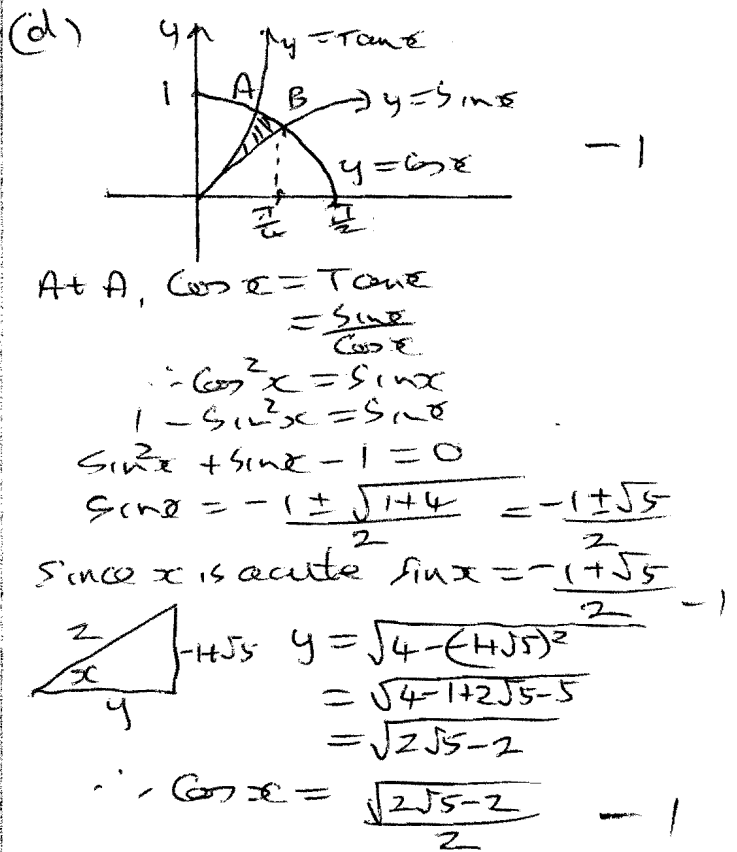 (d) y y = Tan x
1 A B y = Sin x
y = Cos x - 1
π/4 π/2
At A, Cos x = Tan x
= Sin x / Cos x
∴ Cos²x = Sin x
1 - Sin²x = Sin x
Sin²x + Sin x - 1 = 0
Sin x = -1 ± √1+4 / 2 = -1 ± √5 / 2
Since x is acute Sin x = -1 + √5 / 2 - 1
2 x y -1+√5 y = √4-(-1+√5)²
= √4-1+2√5-5
= √2√5-2
∴ Cos x = √2√5-2 / 2 - 1